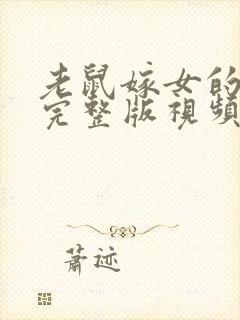 老鼠嫁女的
完整版視頻
蕭迹